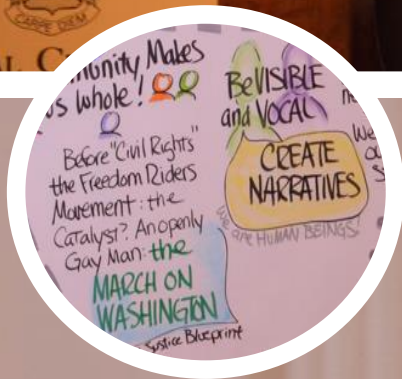 CARPE DIEM
Makes
us Whole!
Before "Civil Rights"
the Freedom Riders
Movement: the
Catalyst? An openly
Gay Man: the
MARCH ON
WASHINGTON
Justice Blueprint
Be VISIBLE
and VOCAL
CREATE
NARRATIVES
We are HUMAN BEINGS!
We